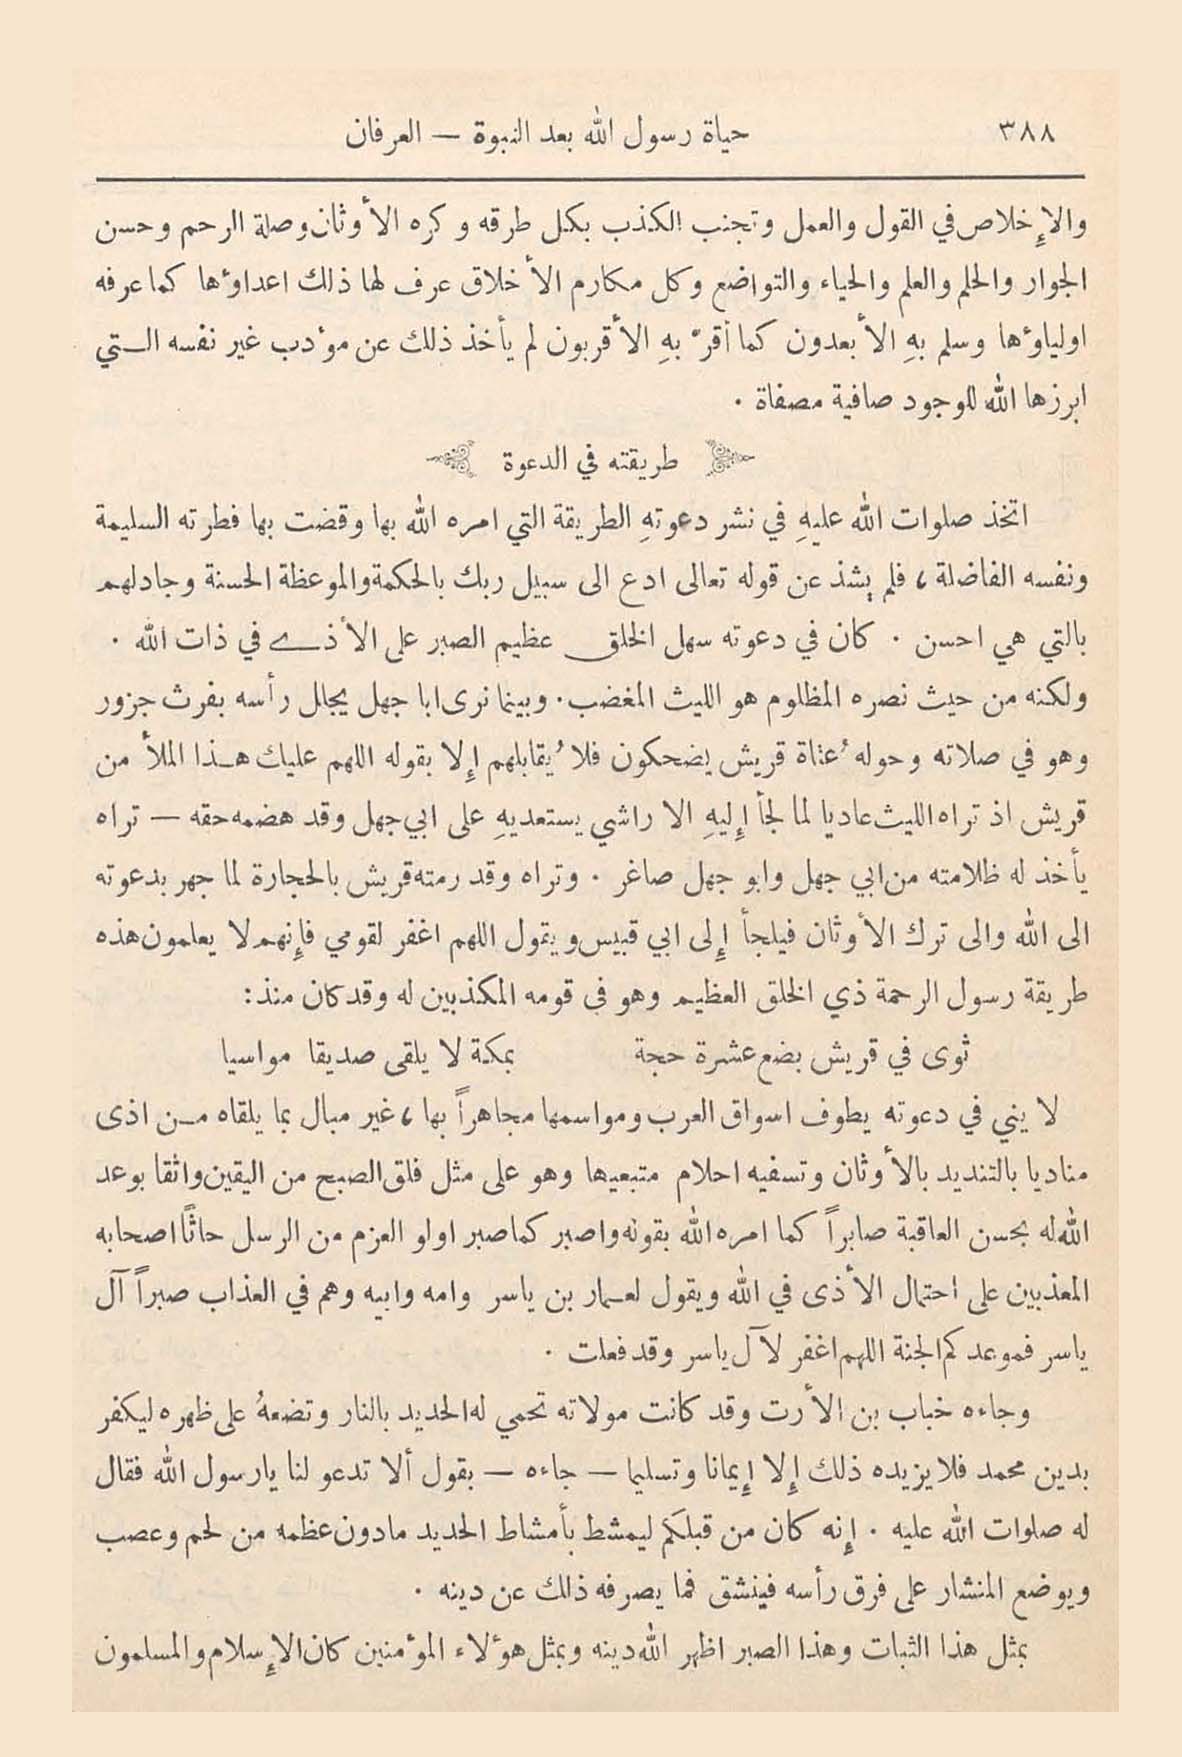 ٣٨٨ حياة رسول الله بعد النبوة — العرفان
والإخلاص في القول والعمل وتجنب الكذب بكل طرقه وكره الأوثان وصلة الرحم وحسن
الجوار والحلم والعلم والحياء والتواضع وكل مكارم الأخلاق عرف لها ذلك اعداؤها كما عرفه
اولياؤها وسلم بهِ الأبعدون كما أقرّ بهِ الأقربون لم يأخذ ذلك عن مؤدب غير نفسه الـتي
ابرزها الله للوجود صافية مصفاة .
طريقته في الدعوة
اتخذ صلوات الله عليهِ في نشر دعوتهِ الطريقة التي امره الله بها وقضت بها فطرته السليمة
ونفسه الفاضلة ، فلم يشذ عن قوله تعالى ادع الى سبيل ربك بالحكمة والموعظة الحسنة وجادلهم
بالتي هي احسن . كان في دعوته سهل الخلق عظيم الصبر على الأذى في ذات الله .
ولكنه من حيث نصره المظلوم هو الليث المغضب . وبينما نرى ابا جهل يجلل رأسه بفرث جزور
وهو في صلاته وحوله عُتاة قريش يضحكون فلا يُقابلهم إلا بقوله اللهم عليك هـذا الملأ من
قريش اذ تراه الليث عاديا لما لجأ إليهِ الا راشي يستعديهِ على ابي جهل وقد هضمه حقه — تراه
يأخذ له ظلامته من ابي جهل وابو جهل صاغر . وتراه وقد رمته قريش بالحجارة لما جهر بدعوته
الى الله والى ترك الأوثان فيلجأ إلى ابي قبيس ويقول اللهم اغفر لقومي فإنهم لا يعلمون هذه
طريقة رسول الرحمة ذي الخلق العظيم وهو في قومه المكذبين له وقد كان منذ :
ثوى في قريش بضع عشرة حجة بمكة لا يلقى صديقا مواسيا
لا يني في دعوته يطوف اسواق العرب ومواسمها مجاهراً بها ، غير مبال بما يلقاه مـن اذى
مناديا بالتنديد بالأوثان وتسفيه احلام متبعيها وهو على مثل فلق الصبح من اليقين واثقا بوعد
الله له بحسن العاقبة صابراً كما امره الله بقوله واصبر كما صبر اولو العزم من الرسل حاثًا اصحابه
المعذبين على احتمال الأذى في الله ويقول لعـمار بن ياسر وامه وابيه وهم في العذاب صبراً آل
ياسر فموعدكم الجنة اللهم اغفر لآل ياسر وقد فعلت .
وجاءه خباب بن الأرت وقد كانت مولاته تحمي له الحديد بالنار وتضعهُ على ظهره ليكفر
بدين محمد فلا يزيده ذلك إلا إيمانا وتسليما — جاءه — بقول ألا تدعو لنا يا رسول الله فقال
له صلوات الله عليه . إنه كان من قبلكم ليمشط بأمشاط الحديد ما دون عظمه من لحم وعصب
ويوضع المنشار على فرق رأسه فينشق فما يصرفه ذلك عن دينه .
بمثل هذا الثبات وهذا الصبر اظهر الله دينه وبمثل هؤلاء المؤمنين كان الإسلام والمسلمون